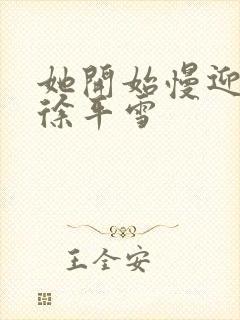 她開始慢迎
徐平雪
王全安